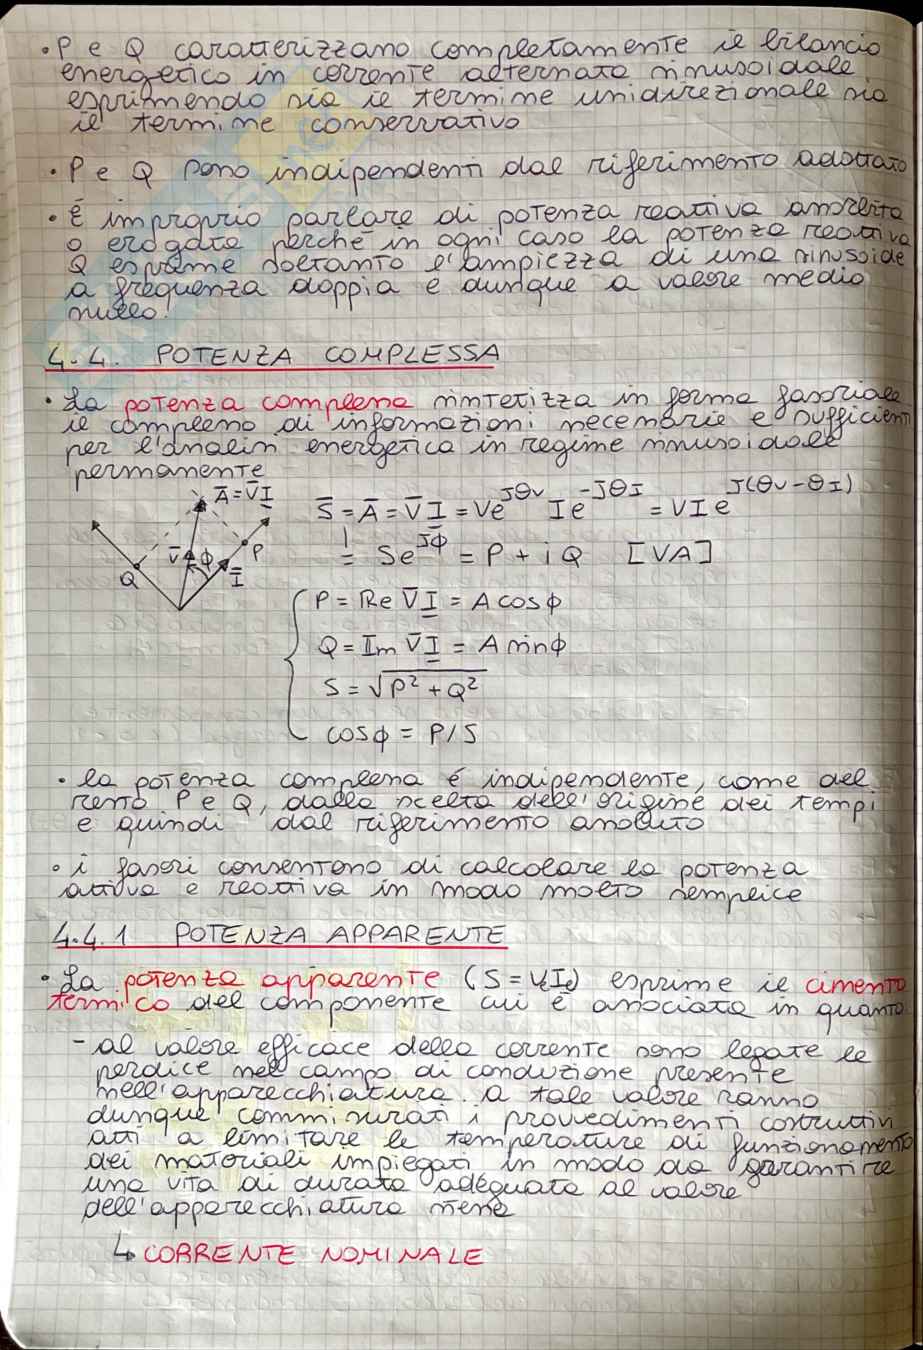 • P e Q caratterizzano completamente il bilancio
energetico in corrente alternata sinusoidale
esprimendo sia il termine unidirezionale sia
il termine conservativo
• P e Q sono indipendenti dal riferimento adottato
• È improprio parlare di potenza reattiva assorbita
o erogata perché in ogni caso la potenza reattiva
Q esprime soltanto l'ampiezza di una sinusoide
a frequenza doppia e dunque a valore medio
nullo.
4.4. POTENZA COMPLESSA
• La potenza complessa sintetizza in forma fasoriale
il complesso di informazioni necessarie e sufficienti
per l'analisi energetica in regime sinusoidale
permanente
A̅ = V̅ I̲
Q V̅ ϕ I̅ P
S̅ = A̅ = V̅ I̲ = Ve^{Jθv} Ie^{-JθI} = VI e^{J(θv-θI)}
= Se^{Jϕ} = P + iQ [VA]
P = Re V̅ I̲ = A cosϕ
Q = Im V̅ I̲ = A sinϕ
S = √(P² + Q²)
cosϕ = P/S
• la potenza complessa é indipendente, come del
resto P e Q, dalla scelta dell'origine dei tempi
e quindi dal riferimento assoluto
• i fasori consentono di calcolare la potenza
attiva e reattiva in modo molto semplice
4.4.1 POTENZA APPARENTE
• La potenza apparente (S = VeIe) esprime il cimento
termico del componente cui è associata in quanto:
- al valore efficace della corrente sono legate le
perdice nel campo di conduzione presente
nell'apparecchiatura. A tale valore vanno
dunque commisurati i provvedimenti costruttivi
atti a limitare le temperature di funzionamento
dei materiali impiegati in modo da garantire
una vita di durata adeguata al valore
dell'apparecchiatura stessa
↳ CORRENTE NOMINALE